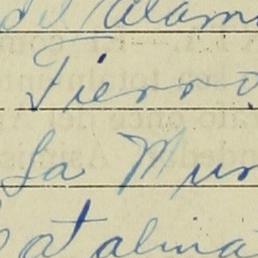 del Alam
Fierro
La Mur
Catalina